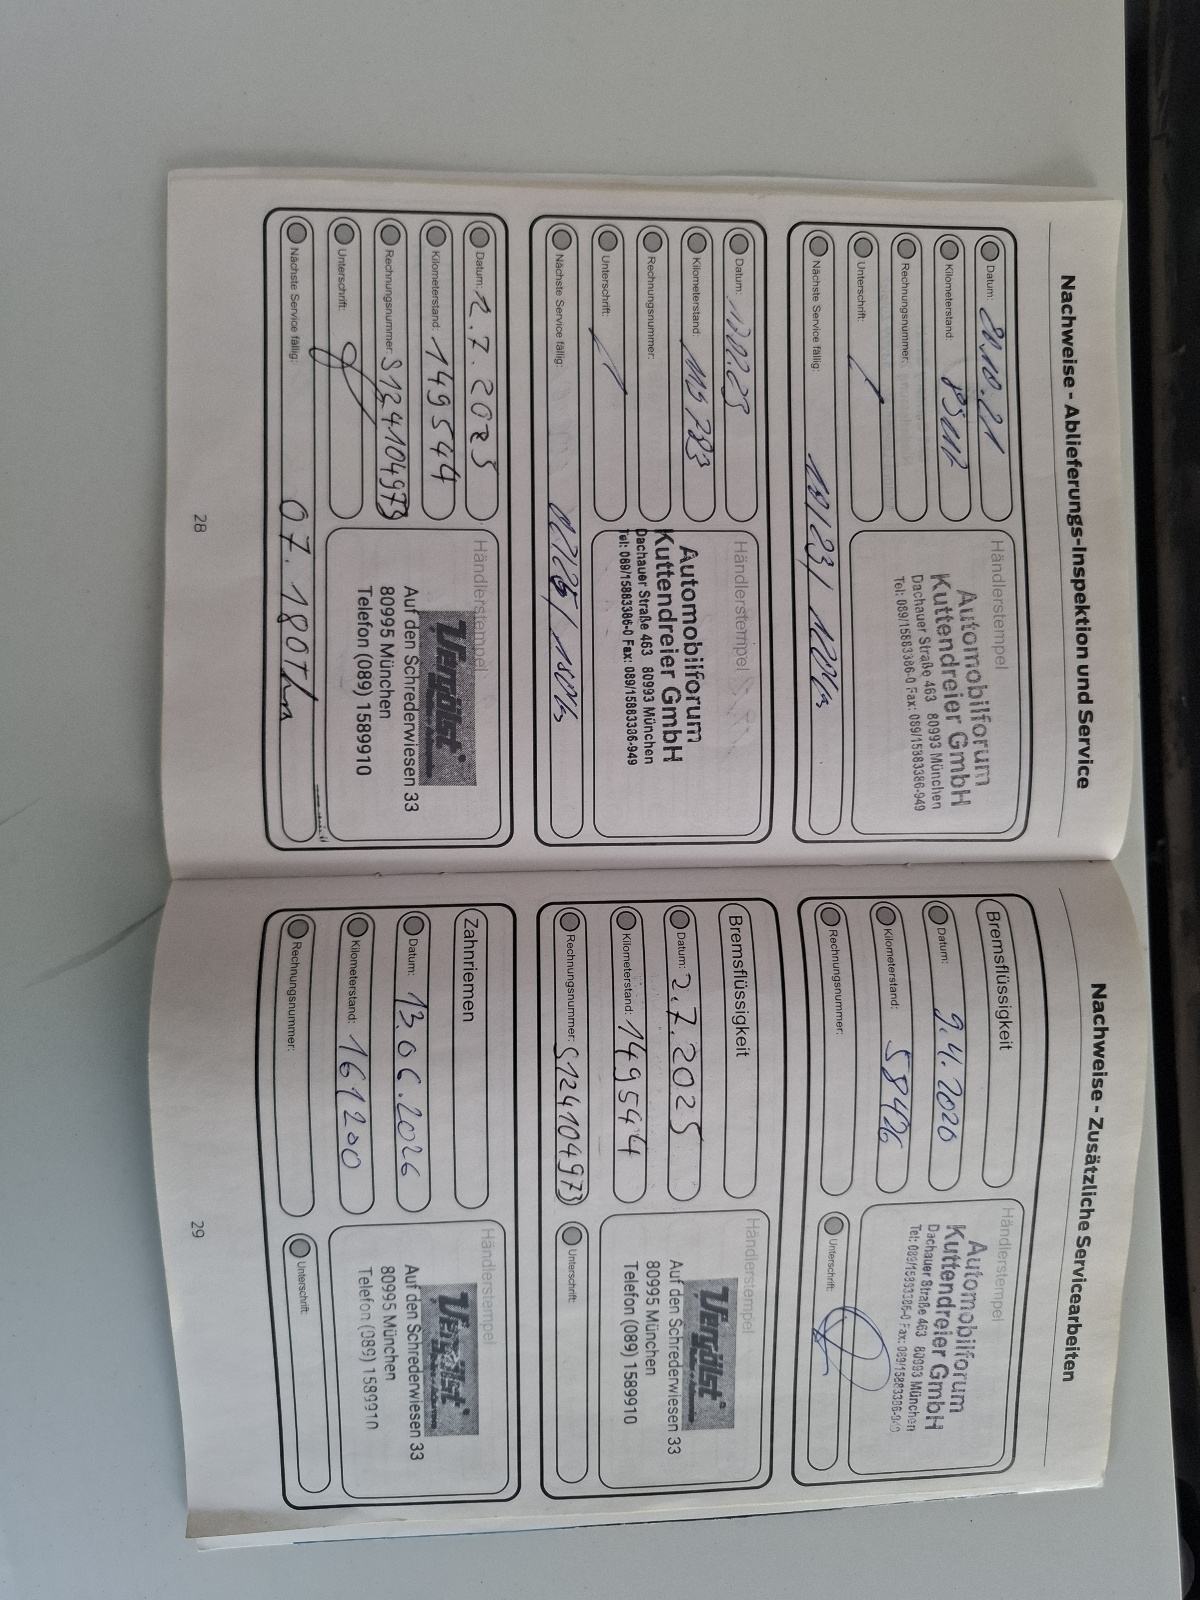 Nachweise - Ablieferungs-Inspektion und Service
Datum: 20.10.21
Kilometerstand:
Rechnungsnummer:
Unterschrift:
Nächste Service fällig: 10/23/
Händlerstempel
Automobilforum
Kuttendreier GmbH
Dachauer Straße 463 80993 München
Tel: 089/15883386-0 Fax: 089/15883386-949
Datum:
Kilometerstand: 115783
Rechnungsnummer:
Unterschrift:
Nächste Service fällig:
Händlerstempel
Automobilforum
Kuttendreier GmbH
Dachauer Straße 463 80993 München
Tel: 089/15883386-0 Fax: 089/15883386-949
Datum: 2.7.2025
Kilometerstand: 149544
Rechnungsnummer: S124104973
Unterschrift:
Nächste Service fällig: 07.180Tkm
Händlerstempel
Vergölst
Auf den Schrederwiesen 33
80995 München
Telefon (089) 1589910
28
Nachweise - Zusätzliche Servicearbeiten
Bremsflüssigkeit
Datum: 9.4.2020
Kilometerstand: 58426
Rechnungsnummer:
Händlerstempel
Automobilforum
Kuttendreier GmbH
Dachauer Straße 463 80993 München
Tel: 089/15883386-0 Fax: 089/15883386-949
Unterschrift:
Bremsflüssigkeit
Datum: 2.7.2025
Kilometerstand: 149544
Rechnungsnummer: S124104973
Händlerstempel
Vergölst
Auf den Schrederwiesen 33
80995 München
Telefon (089) 1589910
Unterschrift:
Zahnriemen
Datum: 13.06.2026
Kilometerstand: 161200
Rechnungsnummer:
Händlerstempel
Vergölst
Auf den Schrederwiesen 33
80995 München
Telefon (089) 1589910
Unterschrift:
29